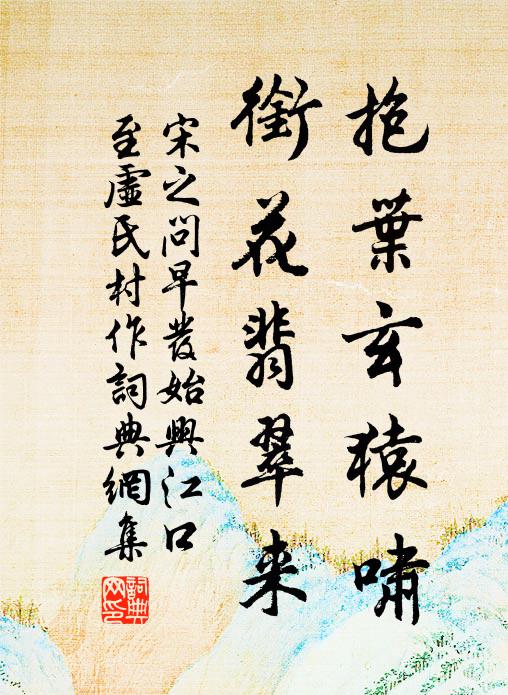 抱葉玄猿嘯
銜花翡翠来
宋之問早發始興江口
至虛氏村作詞典網集
詞典網印